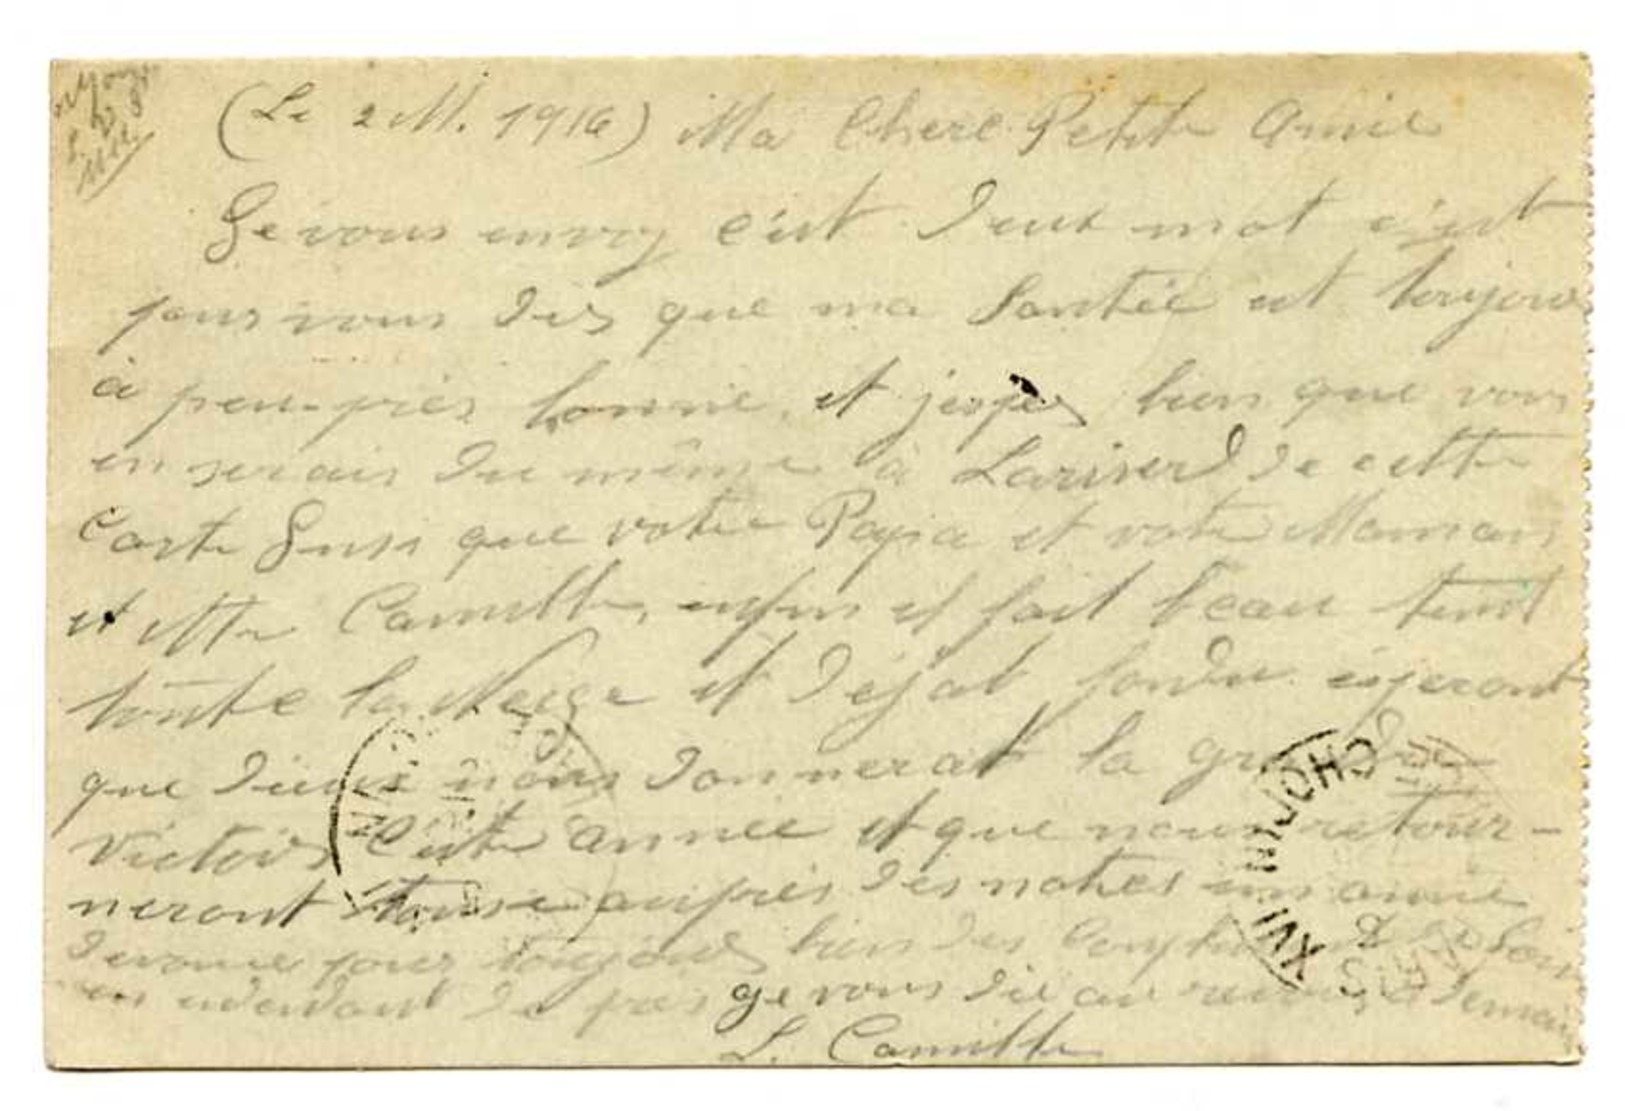 (Le 2 M. 1916) Ma Chere Petite Amie
Je vous envoy c'est deux mot c'est
pour vous dis que ma Santée est toujour
à peu-près bonne, et j'espes bien que vous
en serais du même à Lariverd de cette
Carte Gusi que votre Papa et votre Maman
et Mr Camille, enfin il fait beau temt
toute la Neige et dejat fondu esperont
que dieux nous donnerat la grande
Victoire c'ete année et que nous retour-
neront tous auprès des notres un amie
devoue pour toujours bien des
en de pas ge vous die au revoir a demain
L. Camille
CHOPIN
XVI
PARIS